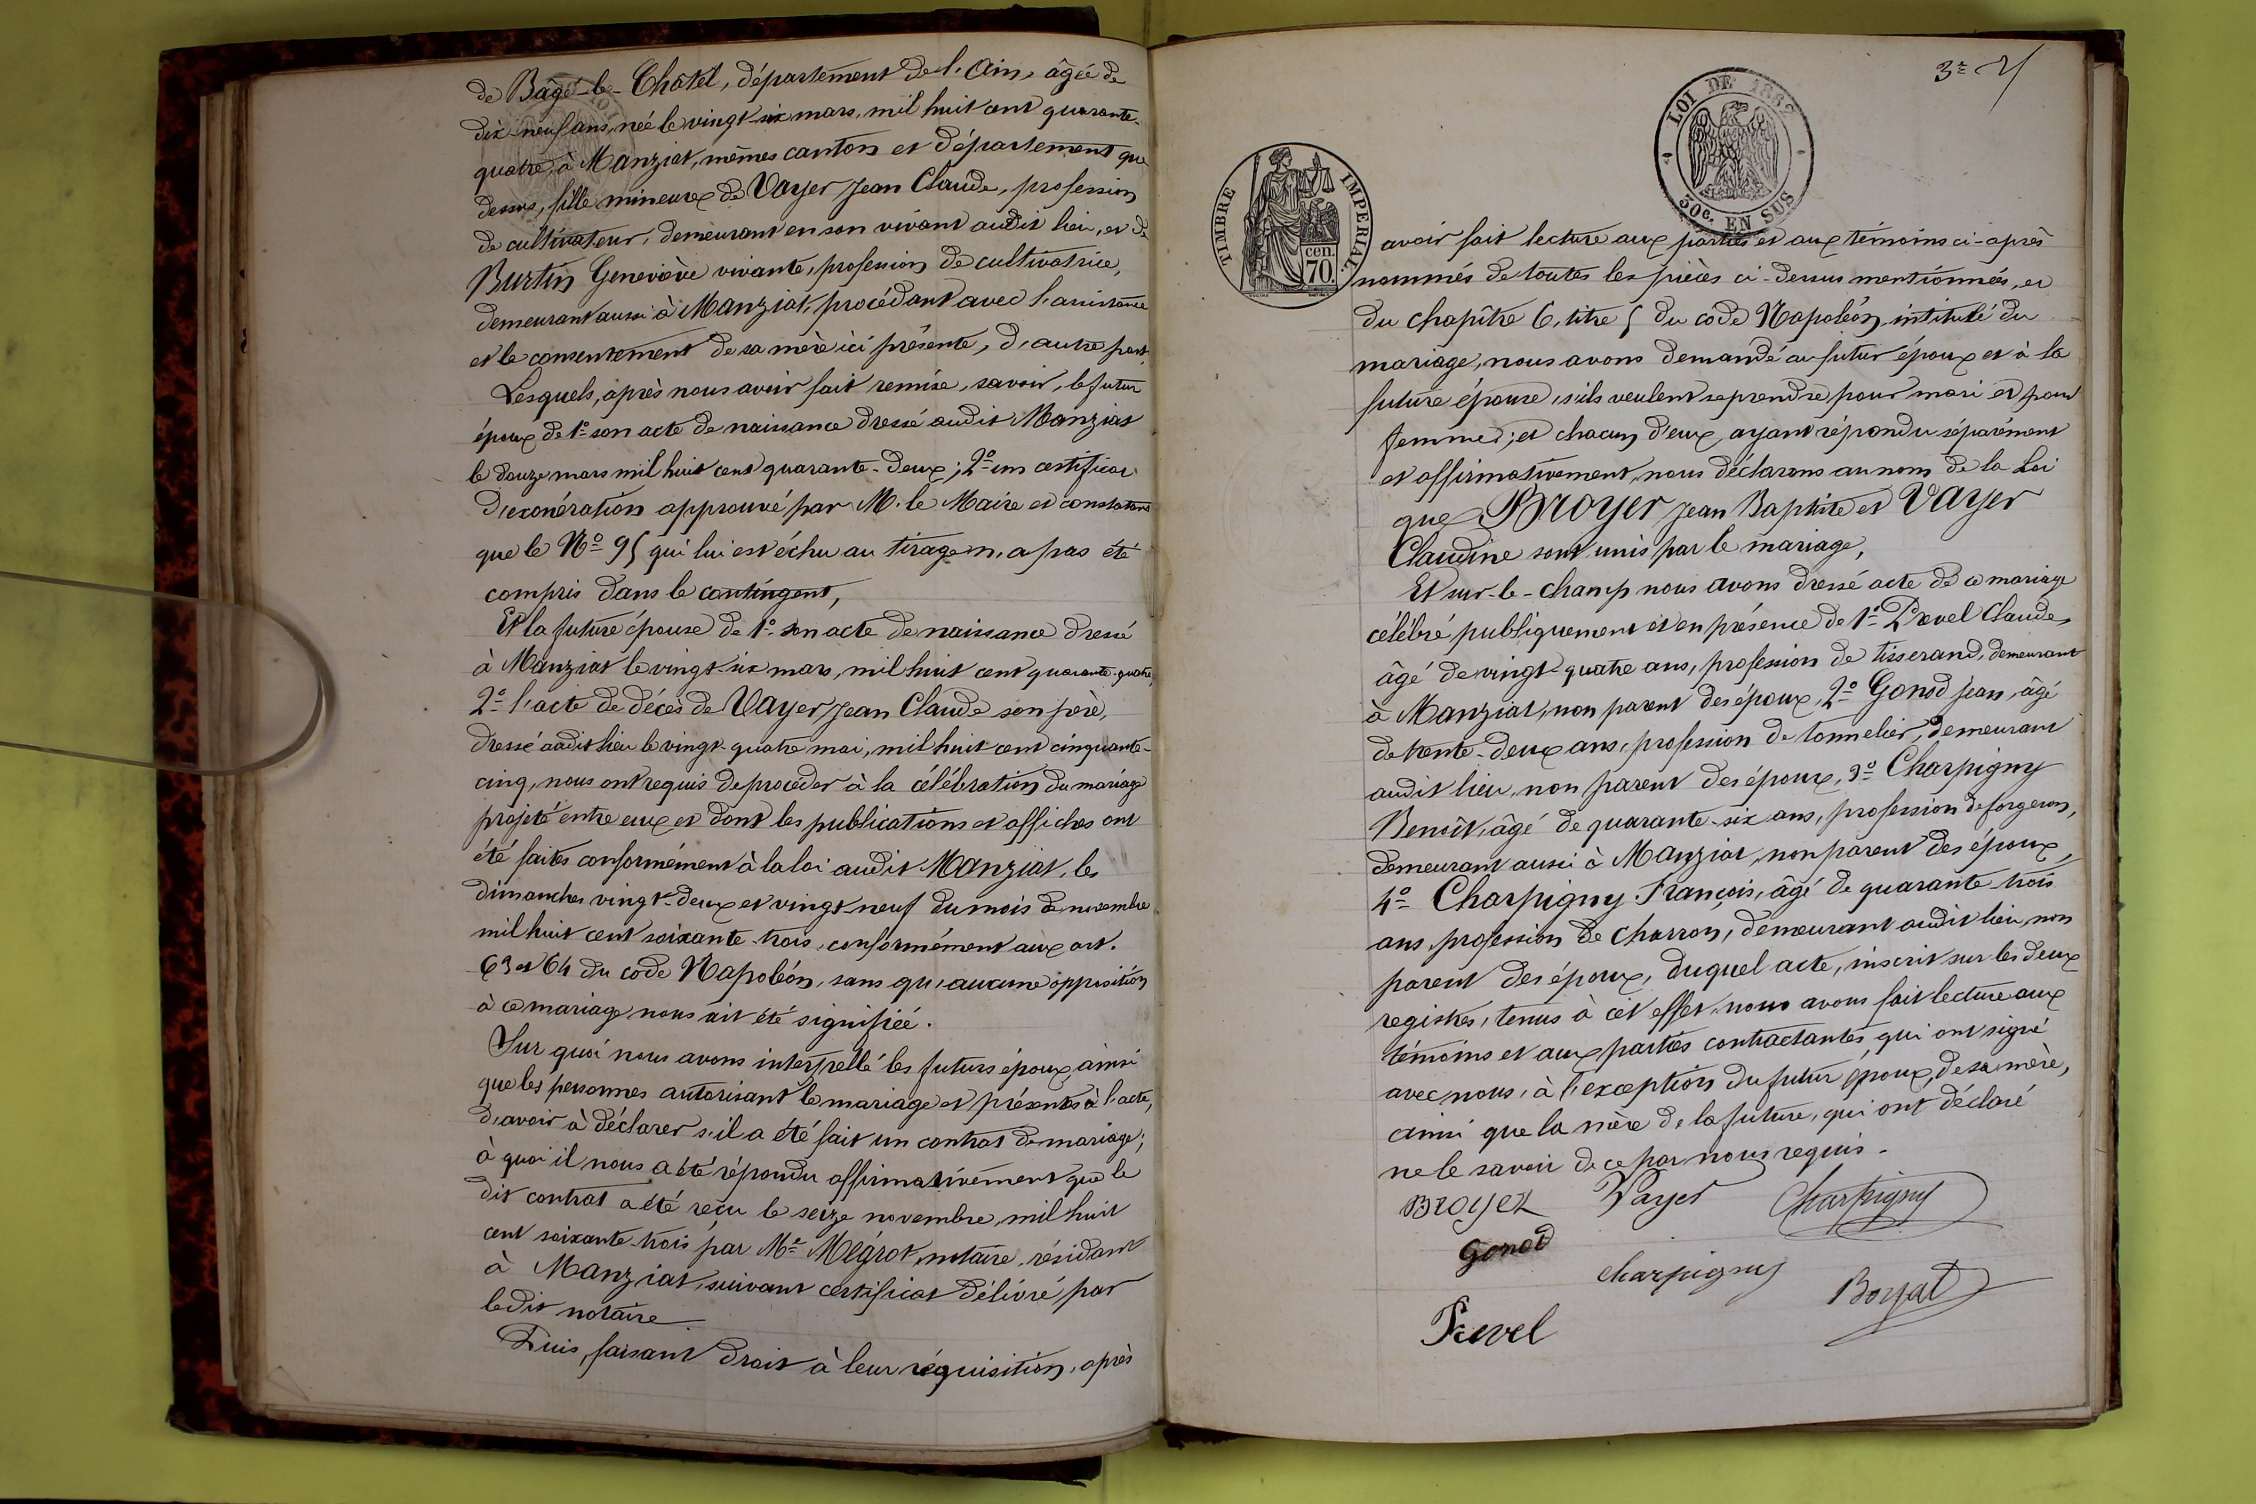 de Bâgé-le-Châtel, département de l'Ain, âgée de
dix-neuf ans, née le vingt-six mars, mil huit cent quarante-
quatre, à Manziat, mêmes canton et département que
dessus, fille mineure de Vayer Jean Claude, profession
de cultivateur, demeurant en son vivant audit lieu, et de
Burtin Geneviève vivante, profession de cultivatrice,
demeurant aussi à Manziat, procédant avec l'assistance
et le consentement de sa mère ici présente, d'autre part.
Lesquels, après nous avoir fait remise, savoir, le futur
époux de 1º son acte de naissance dressé audit Manziat
le douze mars mil huit cent quarante-deux; 2º un certificat
d'exonération approuvé par M. le Maire et constatant
que le Nº 95 qui lui est échu au tirage n'a pas été
compris dans le contingent,
Et la future épouse de 1º son acte de naissance dressé
à Manziat le vingt-six mars, mil huit cent quarante-quatre,
2º l'acte de décès de Vayer Jean Claude son père,
dressé audit lieu le vingt-quatre mai, mil huit cent cinquante-
cinq, nous ont requis de procéder à la célébration du mariage
projeté entre eux et dont les publications et affiches ont
été faites conformément à la loi audit Manziat, les
dimanches vingt-deux et vingt-neuf du mois de novembre
mil huit cent soixante-trois, conformément aux art.
63 et 64 du code Napoléon, sans qu'aucune opposition
à ce mariage nous ait été signifiée.
Sur quoi nous avons interpellé les futurs époux, ainsi
que les personnes autorisant le mariage et présentes à l'acte,
d'avoir à déclarer s'il a été fait un contrat de mariage;
à quoi il nous a été répondu affirmativement que le
dit contrat a été reçu le seize novembre, mil huit
cent soixante-trois par Me Mégrot, notaire, résidant
à Manziat, suivant certificat délivré par
ledit notaire.
Puis, faisant droit à leur réquisition, après
LOI DE 1862
50c. EN SUS
TIMBRE IMPERIAL
cen.
70.
avoir fait lecture aux parties et aux témoins ci-après
nommés de toutes les pièces ci-dessus mentionnées, et
du chapître 6, titre 5 du code Napoléon intitulé du
mariage, nous avons demandé au futur époux et à la
future épouse, s'ils veulent se prendre pour mari et pour
femme; et chacun d'eux, ayant répondu séparément
et affirmativement, nous déclarons au nom de la Loi
que Broyer Jean Baptiste et Vayer
Claudine sont unis par le mariage,
Et sur-le-champ nous avons dressé acte de ce mariage
célébré publiquement et en présence de 1º Prevel Claude,
âgé de vingt-quatre ans, profession de tisserand, demeurant
à Manziat, non parent des époux, 2º Gonod Jean, âgé
de trente-deux ans, profession de tonnelier, demeurant
audit lieu, non parent des époux, 3º Charpigny
Benoît, âgé de quarante-six ans, profession de forgeron,
demeurant aussi à Manziat, non parent des époux,
4º Charpigny François, âgé de quarante-trois
ans, profession de charron, demeurant audit lieu, non
parent des époux, duquel acte, inscrit sur les deux
registres, tenus à cet effet, nous avons fait lecture aux
témoins et aux parties contractantes qui ont signé
avec nous, à l'exception du futur époux, de sa mère,
ainsi que la mère de la future, qui ont déclaré
ne le savoir de ce par nous requis.
Broyer Vayer Charpigny
Gonod
Charpigny
Boyat
Prevel